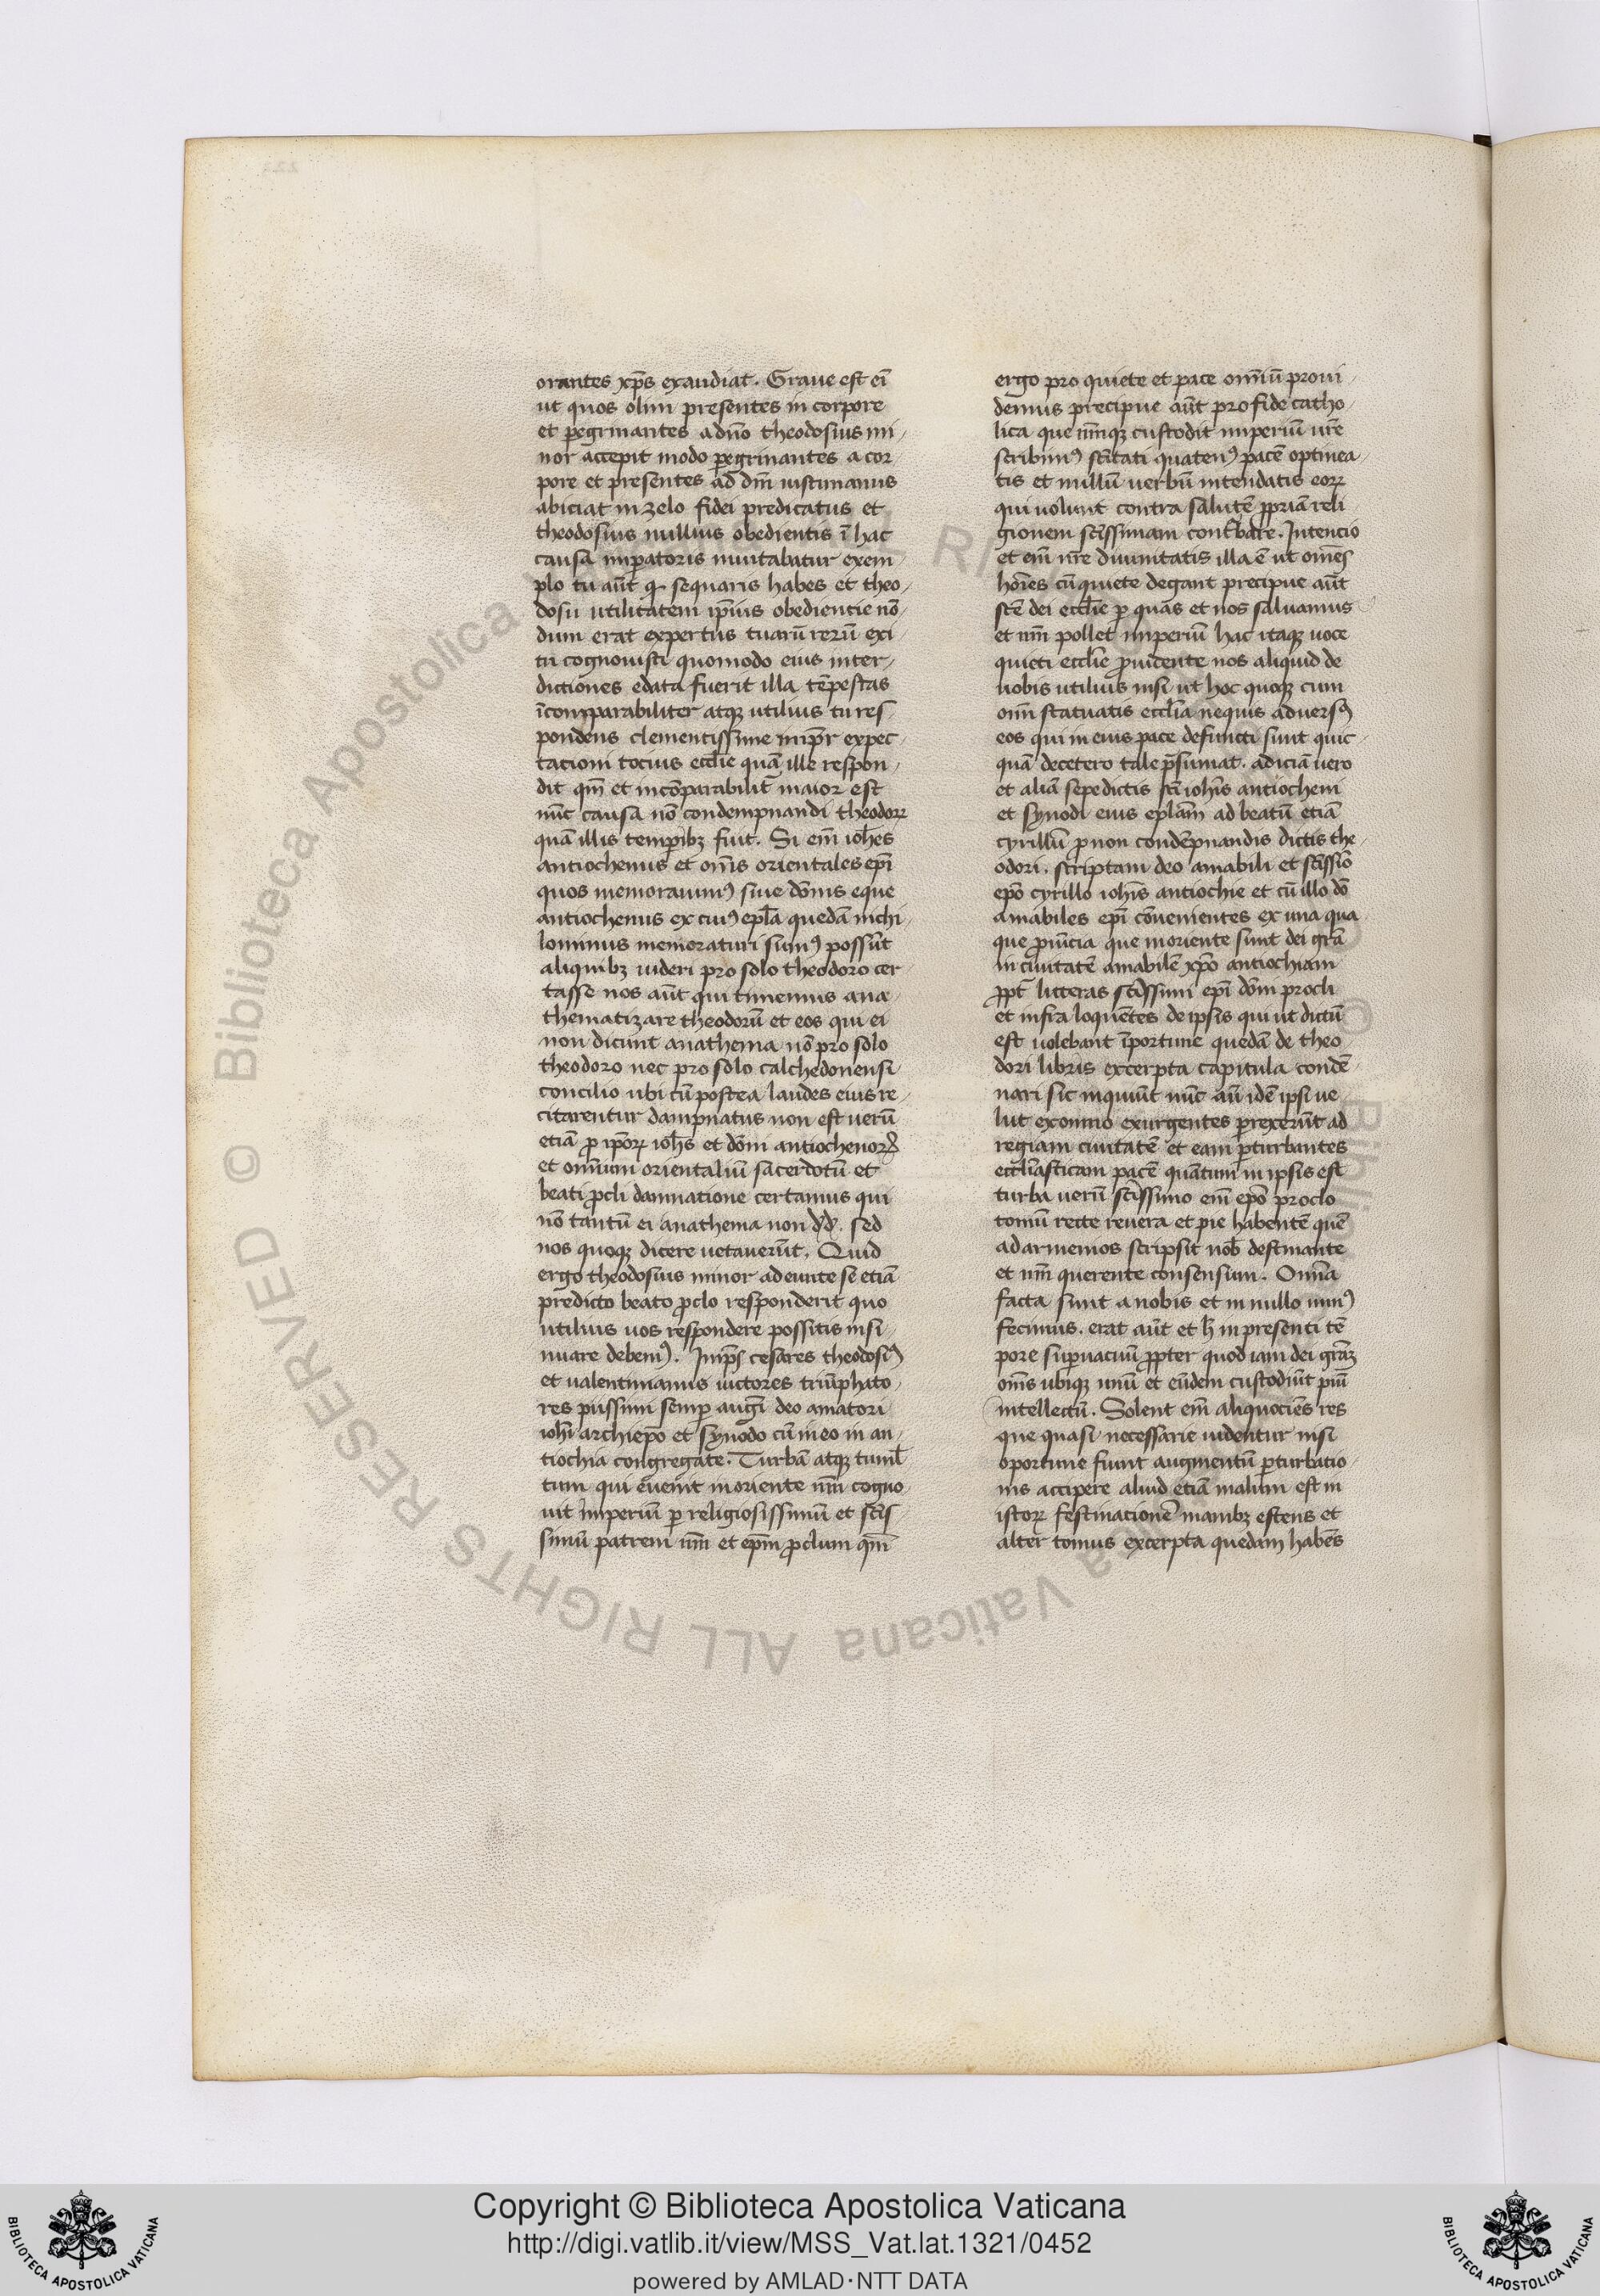 orantes xp̄s exaudiat. Graue est eī
ut quos olim presentes in corpore
et pegrinantes adn̄o theodosius mi
nor accepit modo pegrinantes a cor
pore et presentes ad dn̄m iustinianus
abiciat in zelo fidei predicatus et
theodosius nullius obedientis ī hac
causa imꝑatoris inuitabatur exem
plo tu aūt q sequaris habes et theo
dosii utilitatem ip̄ius obediencie nō
dum erat expertus tuarū rerū exi
tu cognouisti quomodo eius inter
dictiones edata fuerit illa tēpestas
īcomparabiliter atqꝫ utilius tu res
pondens clementissime imp̄r expec
tacioni tocius eccl̄ie quā ille respon
dit qm̄ et incōparabilit̄ maior est
nūc causa nō condempnandi theodorꝝ
quā illis tempibꝫ fuit. Si em̄ ioh̄es
antiochenus et om̄s orientales ep̄i
quos memorauimꝰ siue dōnus eque
antiochenus ex cuiꝰ epl̄a quedā nichi
lominus memoraturi sumꝰ possūt
aliquibꝫ uideri pro solo theodoro cer
tasse nos aūt qui timemus ana
thematizare theodorū et eos qui ei
non dicunt anathema nō pro solo
theodoro nec pro solo calchedonensi
concilio ubi cū postea laudes eius re
citarentur dampnatus non est uerū
etiā ꝓ ip̄orꝝ ioh̄s et dōm antiochenorꝝ
et omnium orientaliū sacerdotū et
beati ꝓcli damnatione certamus qui
nō tantū ei anathema non dx̄d. sed
nos quoqꝫ dicere uetauerūt. Quid
ergo theodosius minor adeunte se etiā
predicto beato ꝓclo responderit quo
utilius uos respondere possitis insi
nuare debemꝰ. Imp̄s cesares theodosiꝰ
et ualentinianus uictores triūphato
res piissimi semꝑ auḡi deo amatori
ioh̄i archiep̄o et synodo cū in eo in an
tiochia congregate. Turbā atqꝫ tumul
tum qui euenit in oriente nr̄m cogno
uit imperiū ꝑ religiosissimū et sc̄is
simū patrem nr̄m et ep̄m ꝓclum qm̄
ergo pro quiete et pace omniū proui
demus precipue aūt pro fide catho
lica que nr̄mqꝫ custodit imperiū ur̄e
scribimꝰ sc̄itati quatenꝰ pacē optinea
tis et nullū uerbū intendatis eorꝝ
qui uolunt contra salutē ꝓpriā reli
gionem sc̄issimam conturbare. Intencio
et em̄ nr̄e diuinitatis illa ē ut om̄es
hoīes cū quiete degant precipue aūt
sc̄e dei eccl̄ie ꝑ quas et nos saluamus
et nr̄m pollet imperiū hac itaqꝫ uoce
quieti eccl̄ie ꝓuidente nos aliquid de
uobis utilius nisi ut hoc quoqꝫ cum
omni statuatis eccl̄ia nequis aduersꝰ
eos qui in eius pace defuncti sunt quic
quā decetero tale p̄sumat. adiciā uero
et aliā sepedictis sc̄i ioh̄is antiocheni
et synodi eius epl̄am ad beatū etiā
cyrillū ꝓ non condēpnandis dictis the
odori. scriptam deo amabili et sc̄issīo
ep̄o cyrillo ioh̄is antiochie et cū illo dō
amabiles ep̄i cōuenientes ex una qua
que ꝓuīcia que in oriente sunt dei grā
in ciuitatē amabilē xp̄o antiochiam
ꝓpt̄ litteras sc̄issimi ep̄i dōm procli
et infra loquētes de ipsis qui ut dictū
est uolebant īportune quedā de theo
dori libris excerpta capitula condē
nari sic inquiūt nūc aūt idē ipsi ue
lut exomno exurgentes ꝑrexerūt ad
regiam ciuitatē et eam ꝑturbantes
eccl̄iasticam pacē quātum in ipsis est
turba uerū sc̄issimo em̄ ep̄o proclo
tomū recte reuera et pie habentē quē
ad armenios scripsit nob̄ destinante
et nr̄m querente consensum. Omnīa
facta sunt a nobis et in nullo minꝰ
fecimus. erat aūt et h̄ in presenti tē
pore supuacuū ꝓpter quod iam dei grā
om̄s ubiqꝫ unū et eūdem custodiūt piū
intellectū. Solent em̄ aliquociēs res
que quasi necessarie uidentur nisi
oportune fiunt augmentū ꝑturbatio
nis accipere aliud etiā malum est in
istorꝝ festinationē manibꝫ estens et
alter tomus excerpta quedam habēs
Copyright © Biblioteca Apostolica Vaticana
http://digi.vatlib.it/view/MSS_Vat.lat.1321/0452
powered by AMLAD·NTT DATA